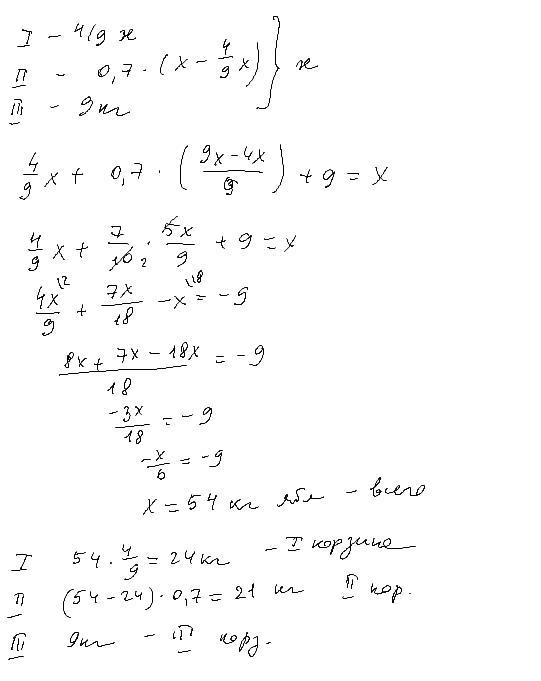 I - 4/9 x
II - 0,7 · (x - 4/9 x) } x
III - 9 кг
4/9 x + 0,7 · ((9x - 4x)/9) + 9 = x
4/9 x + 7/10 2 · 5x/9 + 9 = x
4x/9 |2 + 7x/18 - x |18 = -9
(8x + 7x - 18x)/18 = -9
-3x/18 = -9
-x/6 = -9
x = 54 кг ябл - всего
I 54 · 4/9 = 24 кг - I корзина
II (54 - 24) · 0,7 = 21 кг II кор.
III 9 кг - III корз.